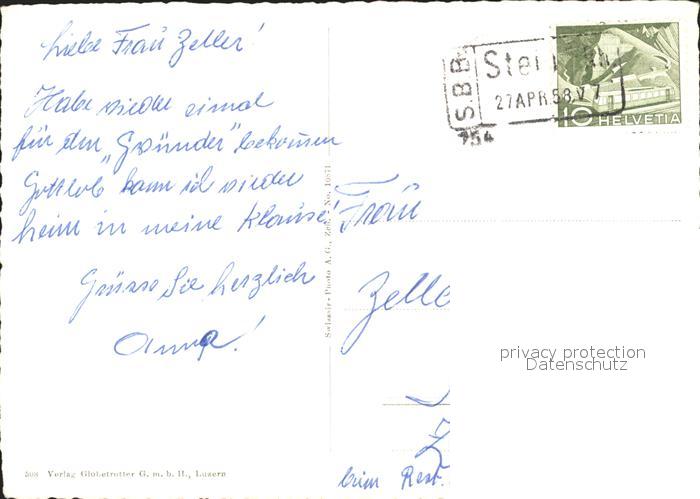 Liebe Frau Zeller!
Habe wieder einmal
für den „Gwünder" bekommen
Gottlob kann ich wieder
heim in meine Klause!
Grüsse Sie herzlich
Anna!
508 Verlag Globetrotter G. m. b. H., Luzern
Swissair-Photo A. G., Zch. • No. 10871
S.B.B.
27 APR. 58. V 7
754
10 HELVETIA
Frau
Zelle
beim Rest.
privacy protection
Datenschutz